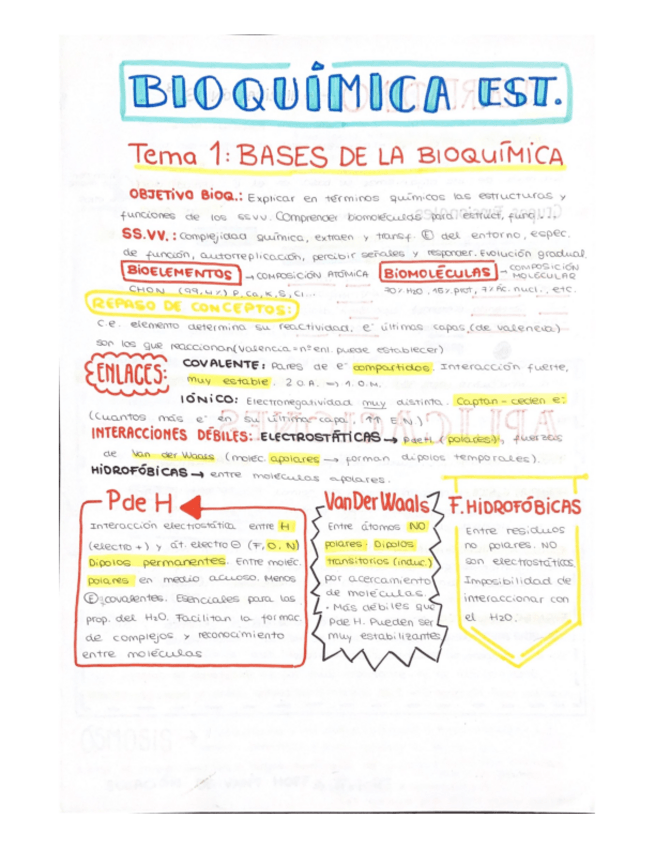 BIOQUÍMICA EST.
Tema 1: BASES DE LA BIOQUÍMICA
OBJETIVO BIOQ.: Explicar en términos químicos las estructuras y
funciones de los ss.vv. Comprender biomoléculas para estruct, func...
SS.VV.: Complejidad química, extraen y transf. Ⓔ del entorno, espec.
de función, autorreplicación, percibir señales y responder. Evolución gradual
BIOELEMENTOS → COMPOSICIÓN ATÓMICA BIOMOLÉCULAS → COMPOSICIÓN MOLECULAR
CHON (99,4%) P, Ca, K, S, Cl... 70% H2O, 15% prot, 7% Ác. nucl., etc.
REPASO DE CONCEPTOS:
C.e. elemento determina su reactividad, e⁻ últimas capas (de valencia)
son los que reaccionan (valencia = nº enl. puede establecer)
ENLACES:
COVALENTE: Pares de e⁻ compartidos. Interacción fuerte,
muy estable. 2 O.A. ⇒ 1 O.M.
IÓNICO: Electronegatividad muy distinta. Captan - ceden e⁻
(Cuantos más e⁻ en su última capa ↑↑ E.N.)
INTERACCIONES DÉBILES: ELECTROSTÁTICAS → P de H (polares), fuerzas
de Van der Waals (moléc. apolares → forman dipolos temporales).
HIDROFÓBICAS → entre moléculas apolares.
P de H
Interacción electrostática entre H
(electro +) y át. electro ⊖ (F, O, N)
Dipolos permanentes. Entre moléc.
polares en medio acuoso. Menos
Ⓔ covalentes. Esenciales para las
prop. del H2O. Facilitan la formac.
de complejos y reconocimiento
entre moléculas
Van Der Waals
Entre átomos NO
polares. Dipolos
transitorios (induc.)
por acercamiento
de moléculas.
· Más débiles que
P de H. Pueden ser
muy estabilizantes
F. HIDROFÓBICAS
Entre residuos
no polares. NO
son electrostáticas.
Imposibilidad de
interaccionar con
el H2O.